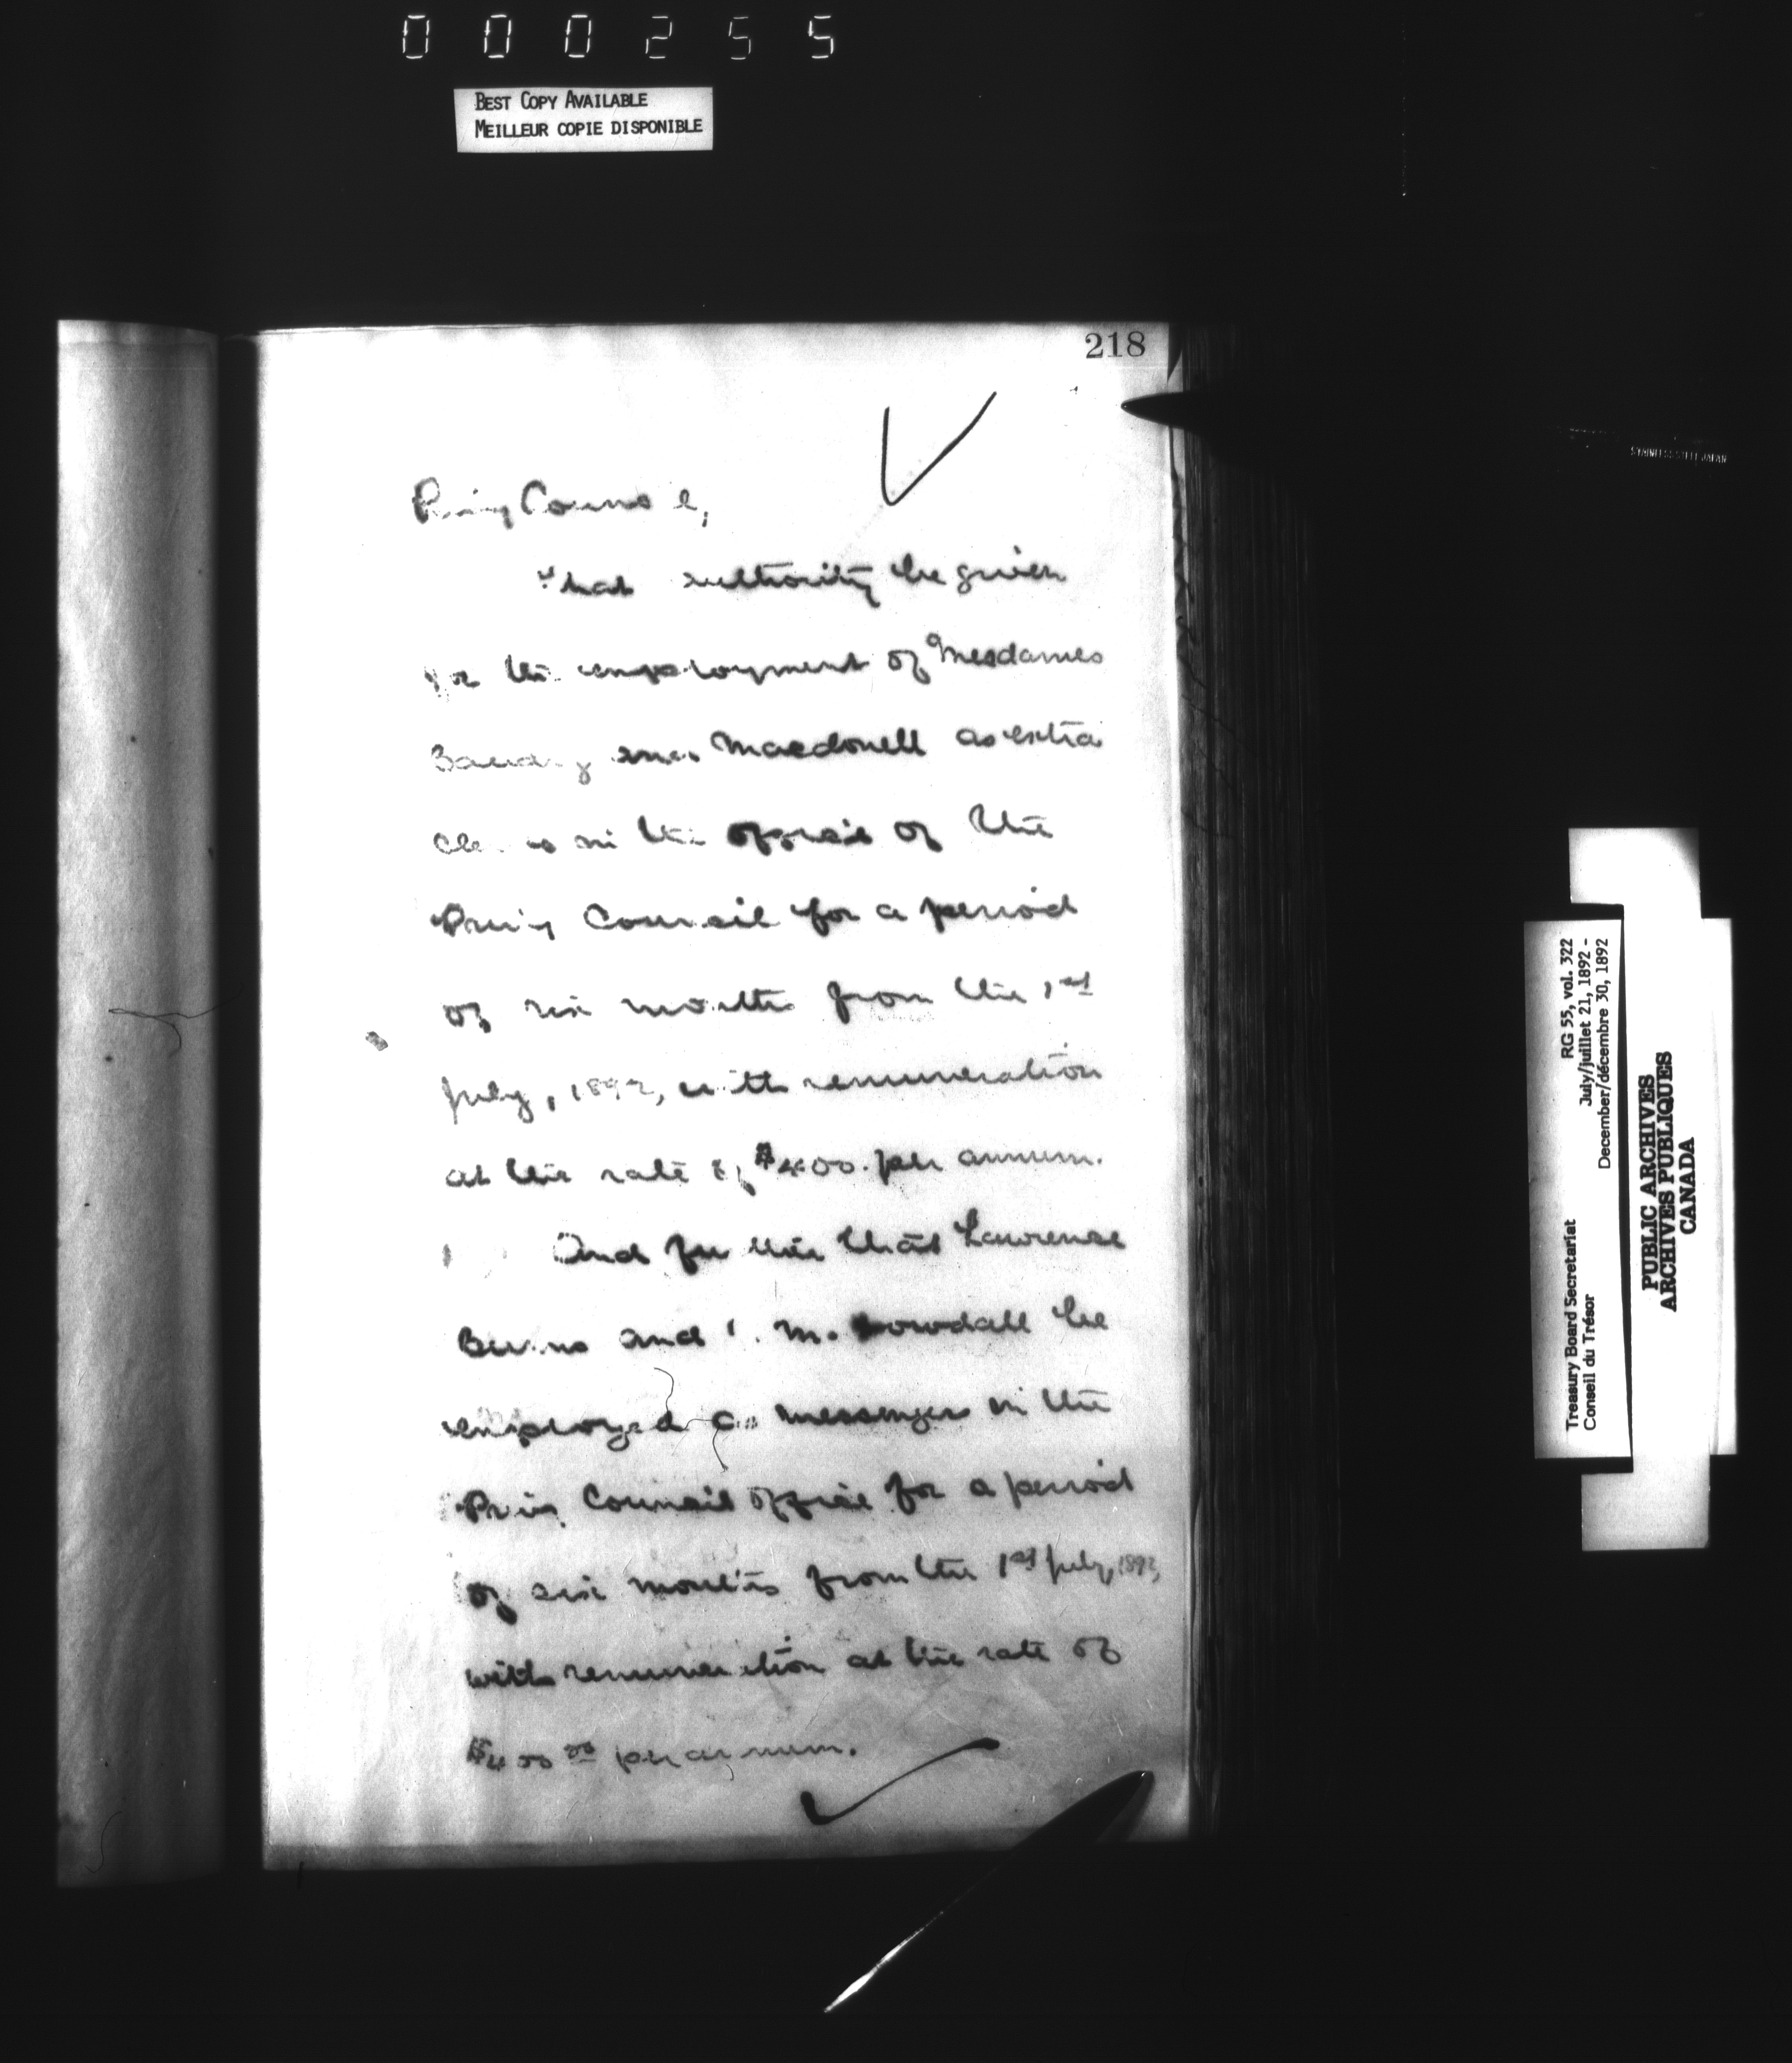 000255
BEST COPY AVAILABLE
MEILLEUR COPIE DISPONIBLE
218
Privy Council,
That authority be given
for the employment of Mesdames
and Macdonell as extra
clerks in the office of the
Privy Council for a period
of six months from the 1st
July, 1892, with remuneration
at the rate of $400. per annum.
And further that Lawrence
Burns and M. Dowdall be
employed as messengers in the
Privy Council office for a period
of six months from the 1st July, 1892,
with remuneration at the rate of
$400 00 per annum.
STAINLESS STEEL JAPAN
Treasury Board Secretariat RG 55, vol. 322
Conseil du Trésor July/juillet 21, 1892 -
December/décembre 30, 1892
PUBLIC ARCHIVES
ARCHIVES PUBLIQUES
CANADA